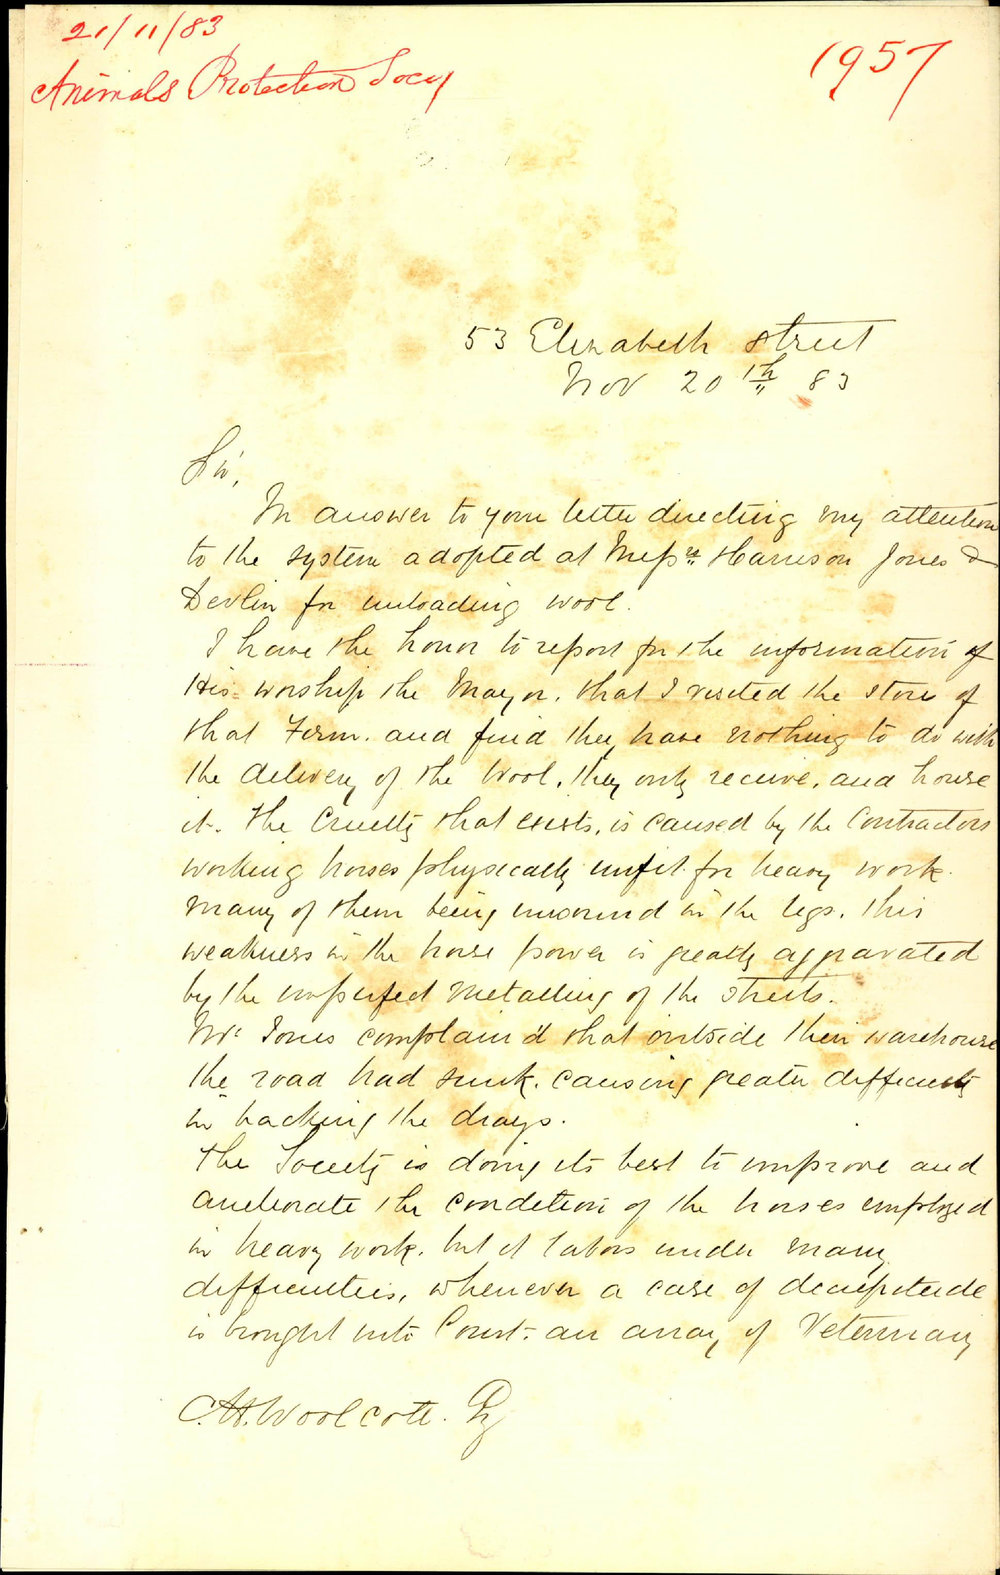 21/11/83
Animals Protection Socy
1957
53 Elizabeth Street
Nov 20th 83
Sir,
In answer to your letter directing my attention
to the system adopted at Messrs Harrison Jones &
Devlin for unloading wool.
I have the honor to report for the information of
His worship the Mayor, that I visited the store of
that Firm. and find they have nothing to do with
the delivery of the Wool, they only receive, and house
it. The Cruelty that exists, is caused by the Contractors
working horses physically unfit for heavy work.
Many of them being unsound in the legs. this
weakness in the horse power is greatly aggravated
by the imperfect metalling of the streets.
Mr Jones complain'd that outside their warehouse
the road had sunk, causing greater difficulty
in backing the drays.
The Society is doing its best to improve and
ameliorate the condition of the horses employed
in heavy work, but it labors under many
difficulties, whenever a case of decrepitude
is brought into Court. an array of Veterinary
C.H. Woolcott. Esq